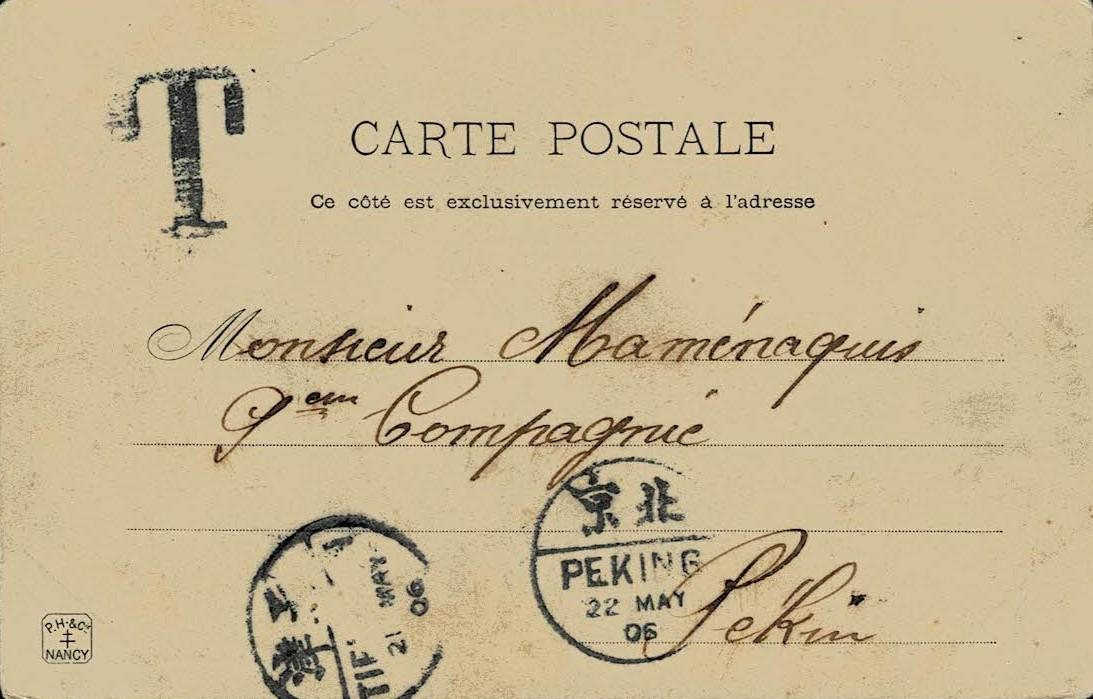 T
CARTE POSTALE
Ce côté est exclusivement réservé à l'adresse
Monsieur Maménaquis
9em Compagnie
京北
PEKING
22 MAY
06
Pékin
津
21 MAY
06
P.H.&Co
NANCY